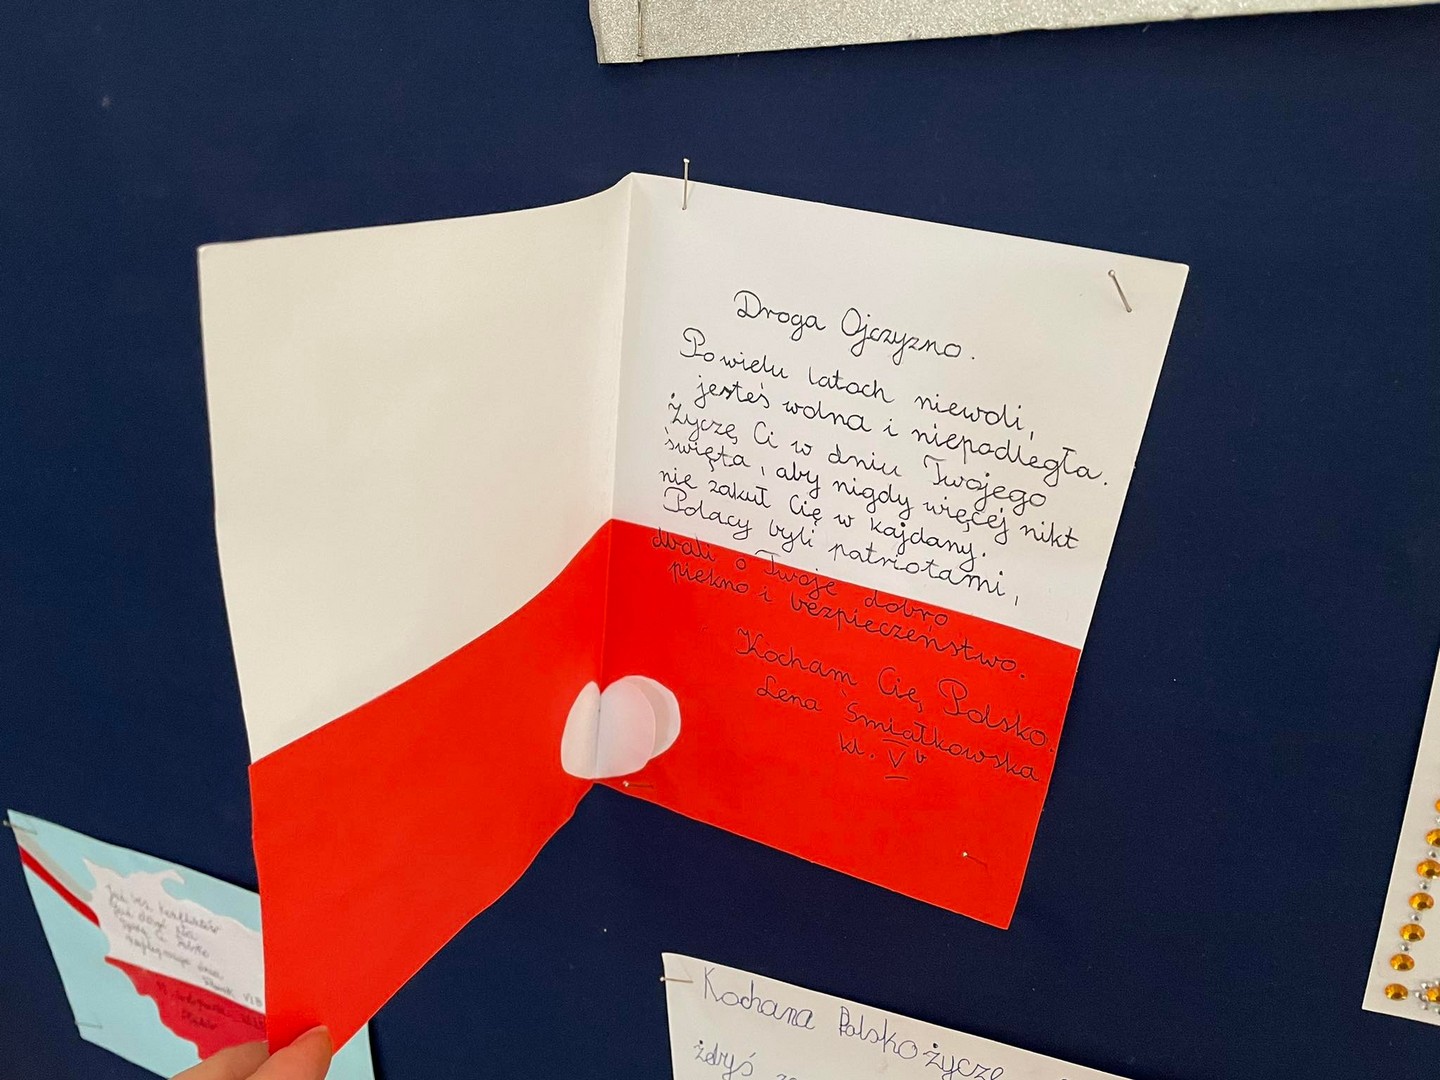 Droga Ojczyzno.
Po wielu latach niewoli,
jesteś wolna i niepodległa.
Życzę Ci w dniu Twojego
święta, aby nigdy więcej nikt
nie zakuł Cię w kajdany.
Polacy byli patriotami,
dbali o Twoje dobro
piękno i bezpieczeństwo.
Kocham Cię, Polsko.
Lena Śmiałkowska
kl. V b
Kochana Polsko życzę
żebyś